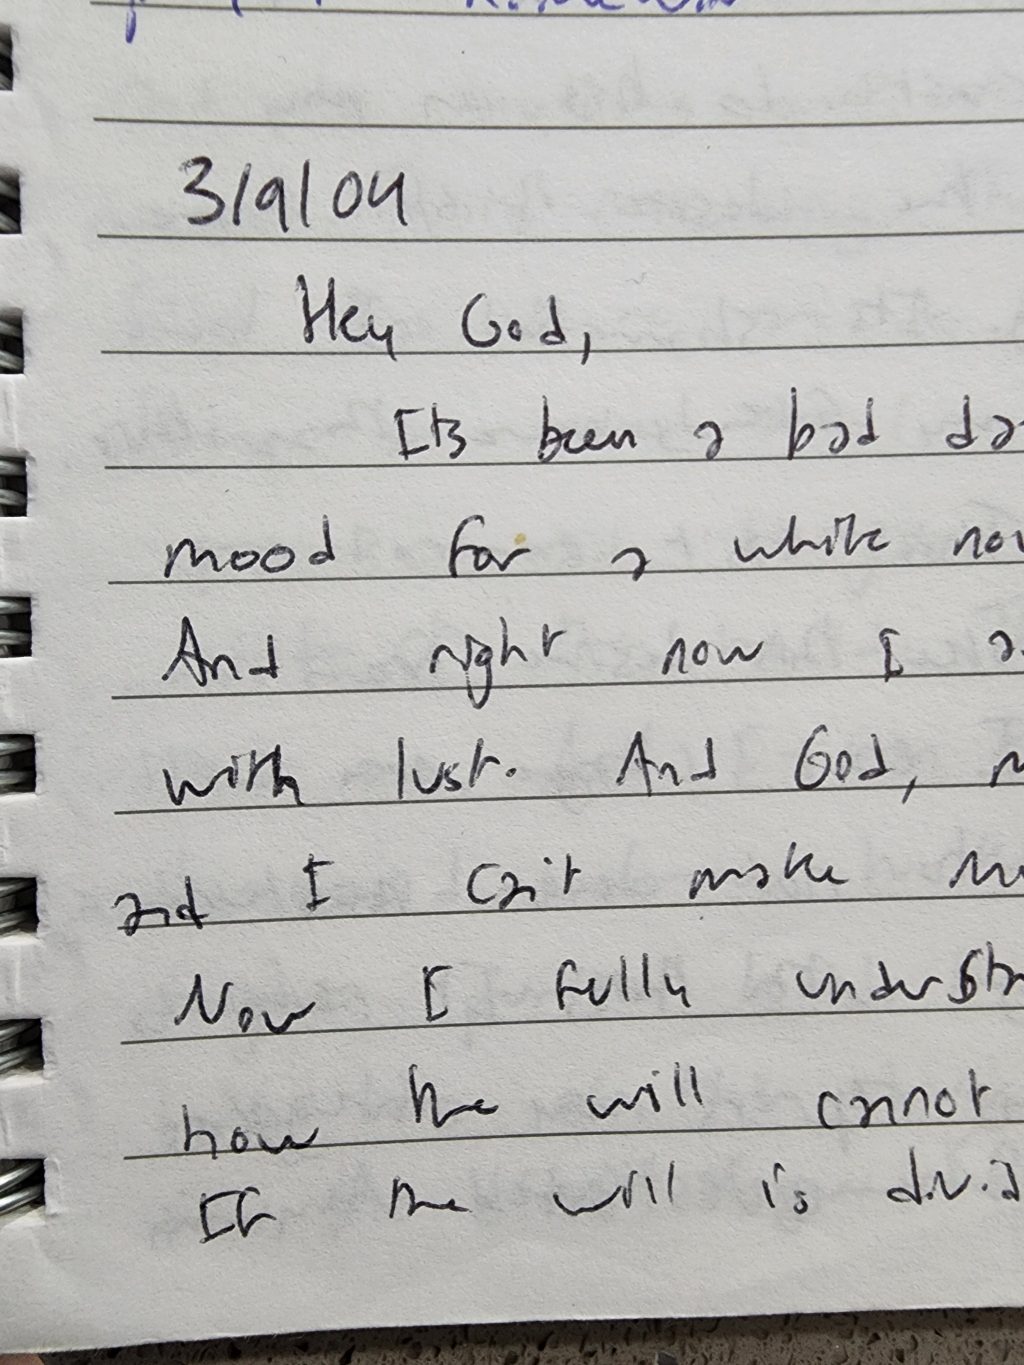 3/9/04
Hey God,
Its been a bad
mood for a while
And right now I
with lust. And God,
and I can't make
Now I fully
how the will cannot
If the will is